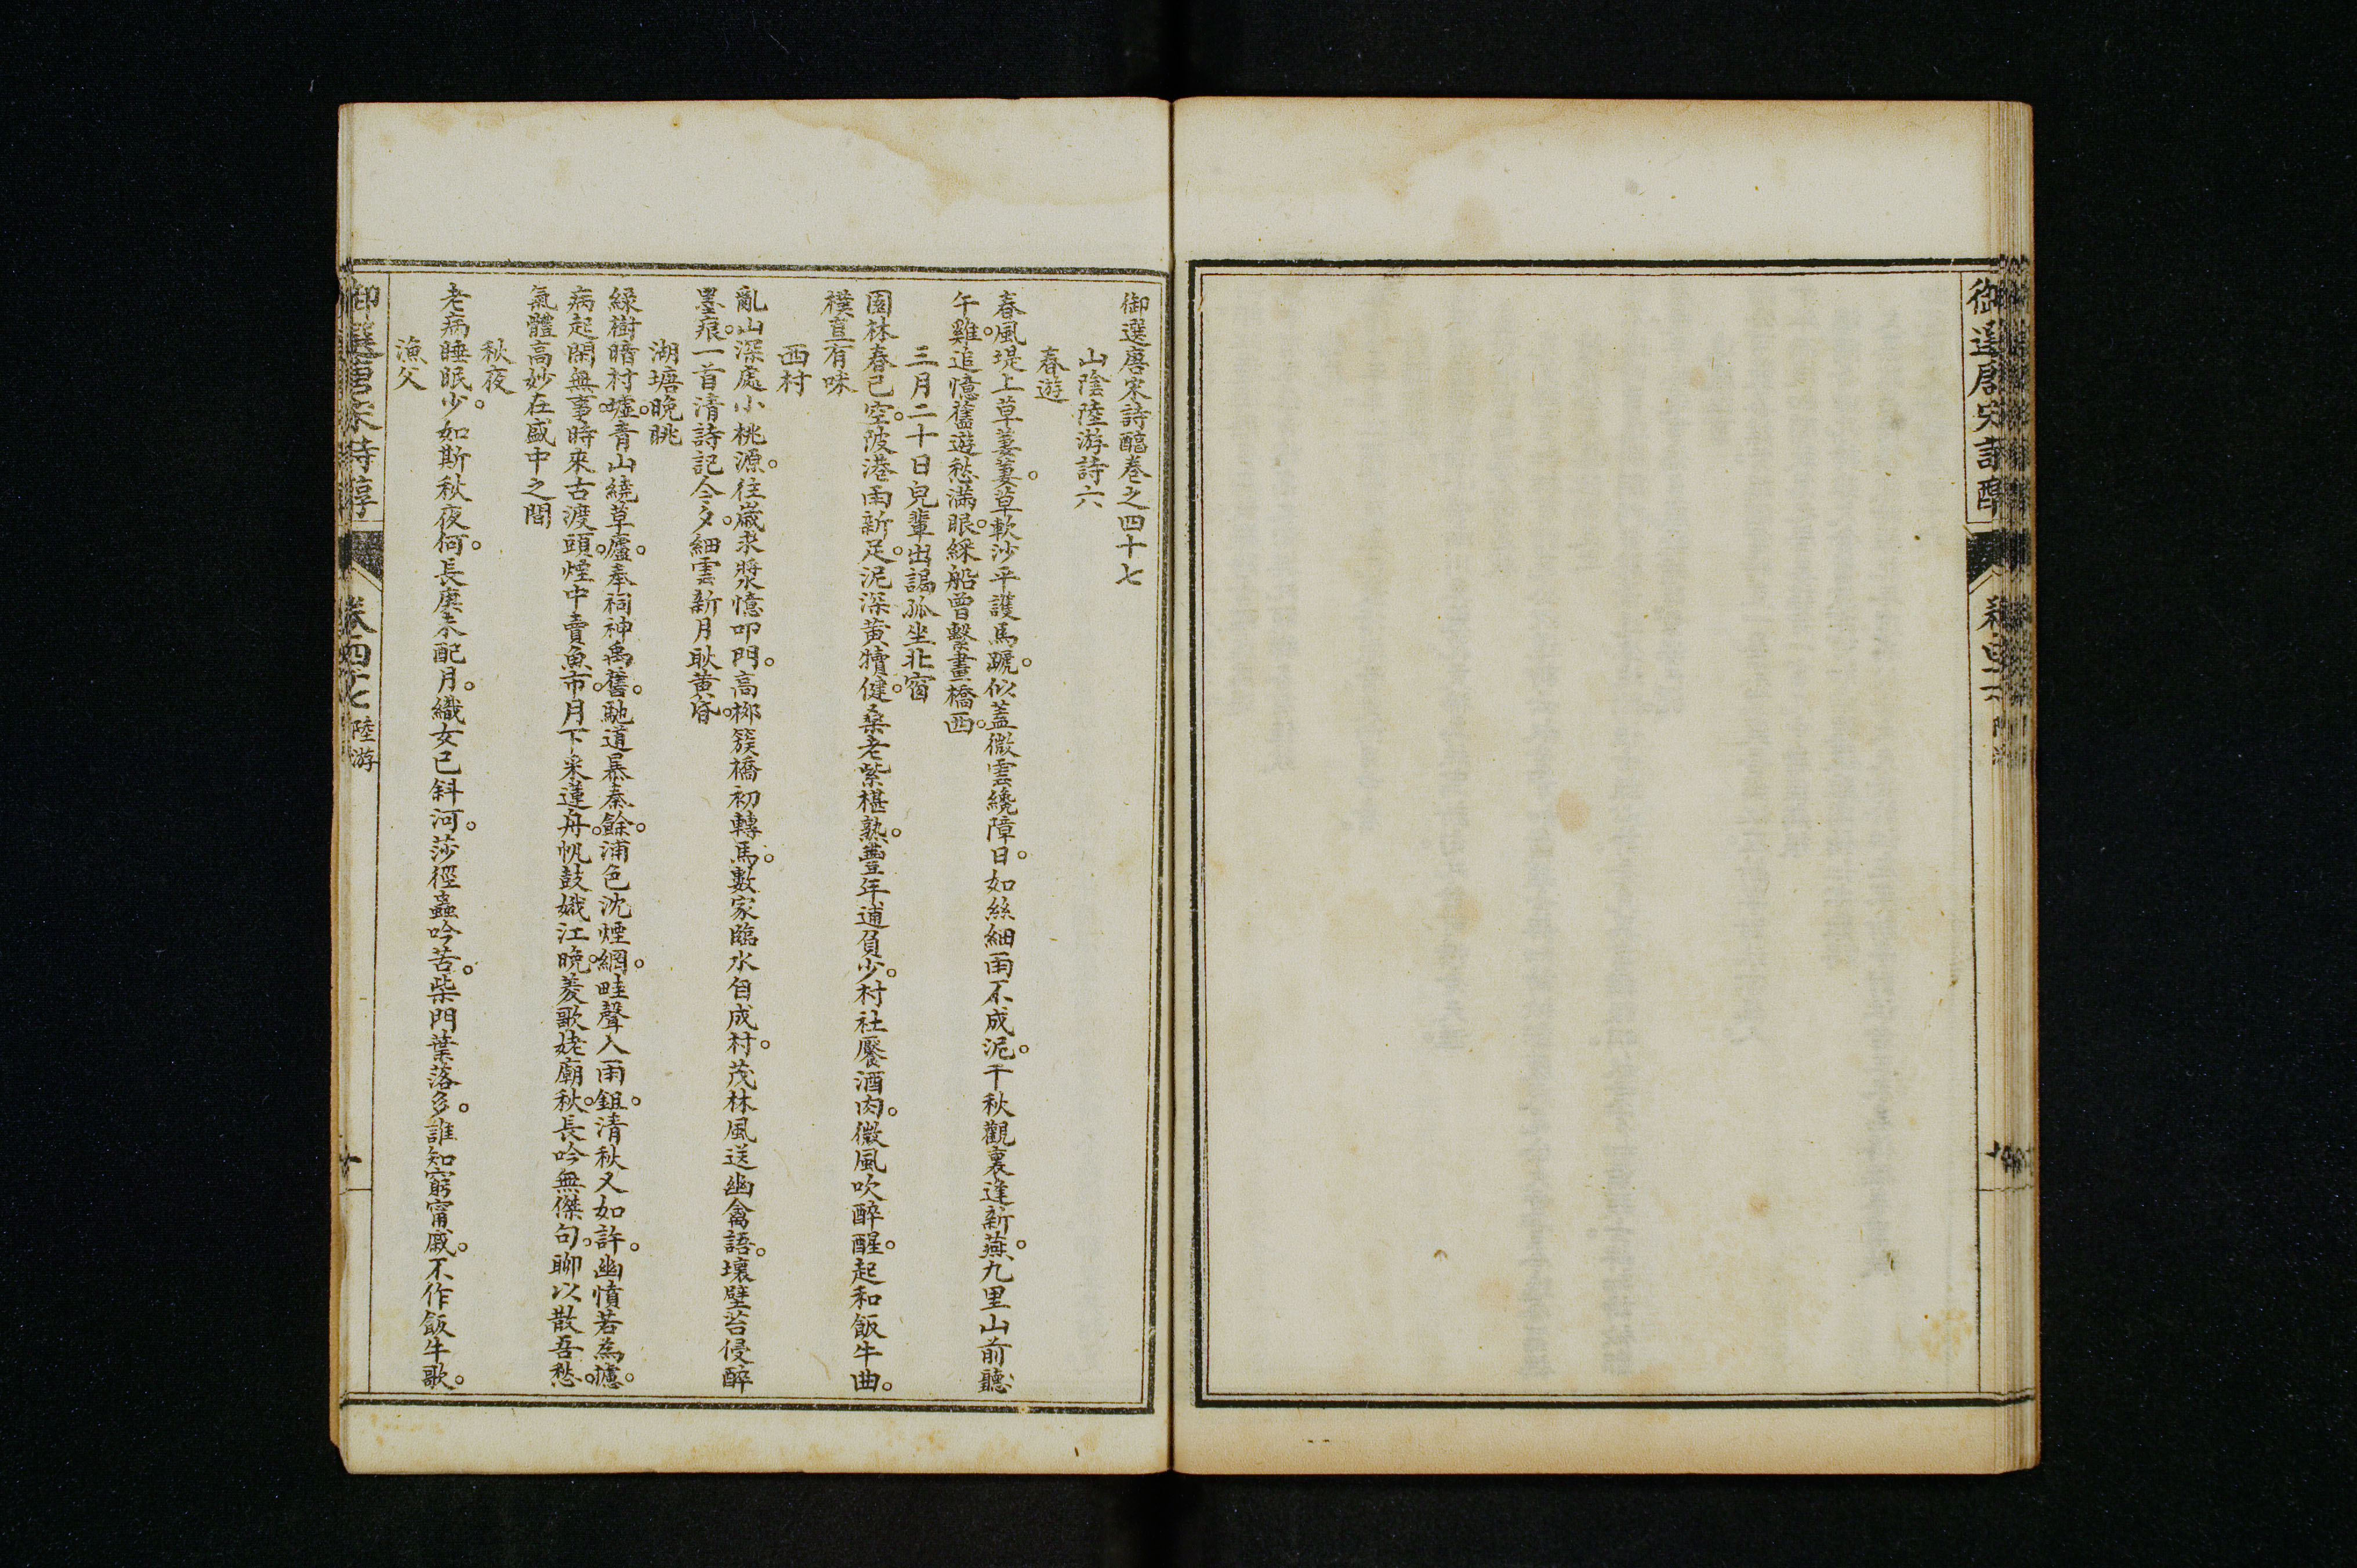 御選唐宋詩醇
御選唐宋詩醇卷之四十七
山陰陸游詩六
春遊
春風堤上草萋萋。草軟沙平護馬蹏。似蓋微雲纔障日。如絲細雨不成泥。千秋觀裏逢新燕。九里山前聽
午雞。追憶舊遊愁滿眼。綵船曾繫畫橋西。
三月二十日兒輩出謁孤坐北窗
園林春已空。陂港雨新足。泥深黃犢健。桑老紫椹熟。豐年逋負少。村社饜酒肉。微風吹醉醒。起和飯牛曲。
樸直有味
西村
亂山深處小桃源。往歲求漿憶叩門。高柳簇橋初轉馬。數家臨水自成村。茂林風送幽禽語。壞壁苔侵醉
墨痕。一首清詩記今夕。細雲新月耿黃昏。
湖塘晚眺
綠樹暗村墟。青山繞草廬。奉祠神禹舊。馳道暴秦餘。浦色沈煙網。畦聲入雨鉏。清秋又如許。幽憤若為攄。
病起閑無事。時來古渡頭。煙中賣魚市。月下采蓮舟。帆鼓娥江晚。菱歌姥廟秋。長吟無傑句。聊以散吾愁。
氣體高妙在盛中之間
秋夜
老病睡眠少。如斯秋夜何。長庚來配月。織女已斜河。莎徑蟲吟苦。柴門葉落多。誰知窮甯戚。不作飯牛歌。
漁父
御選唐宋詩醇
卷四十七 陸游